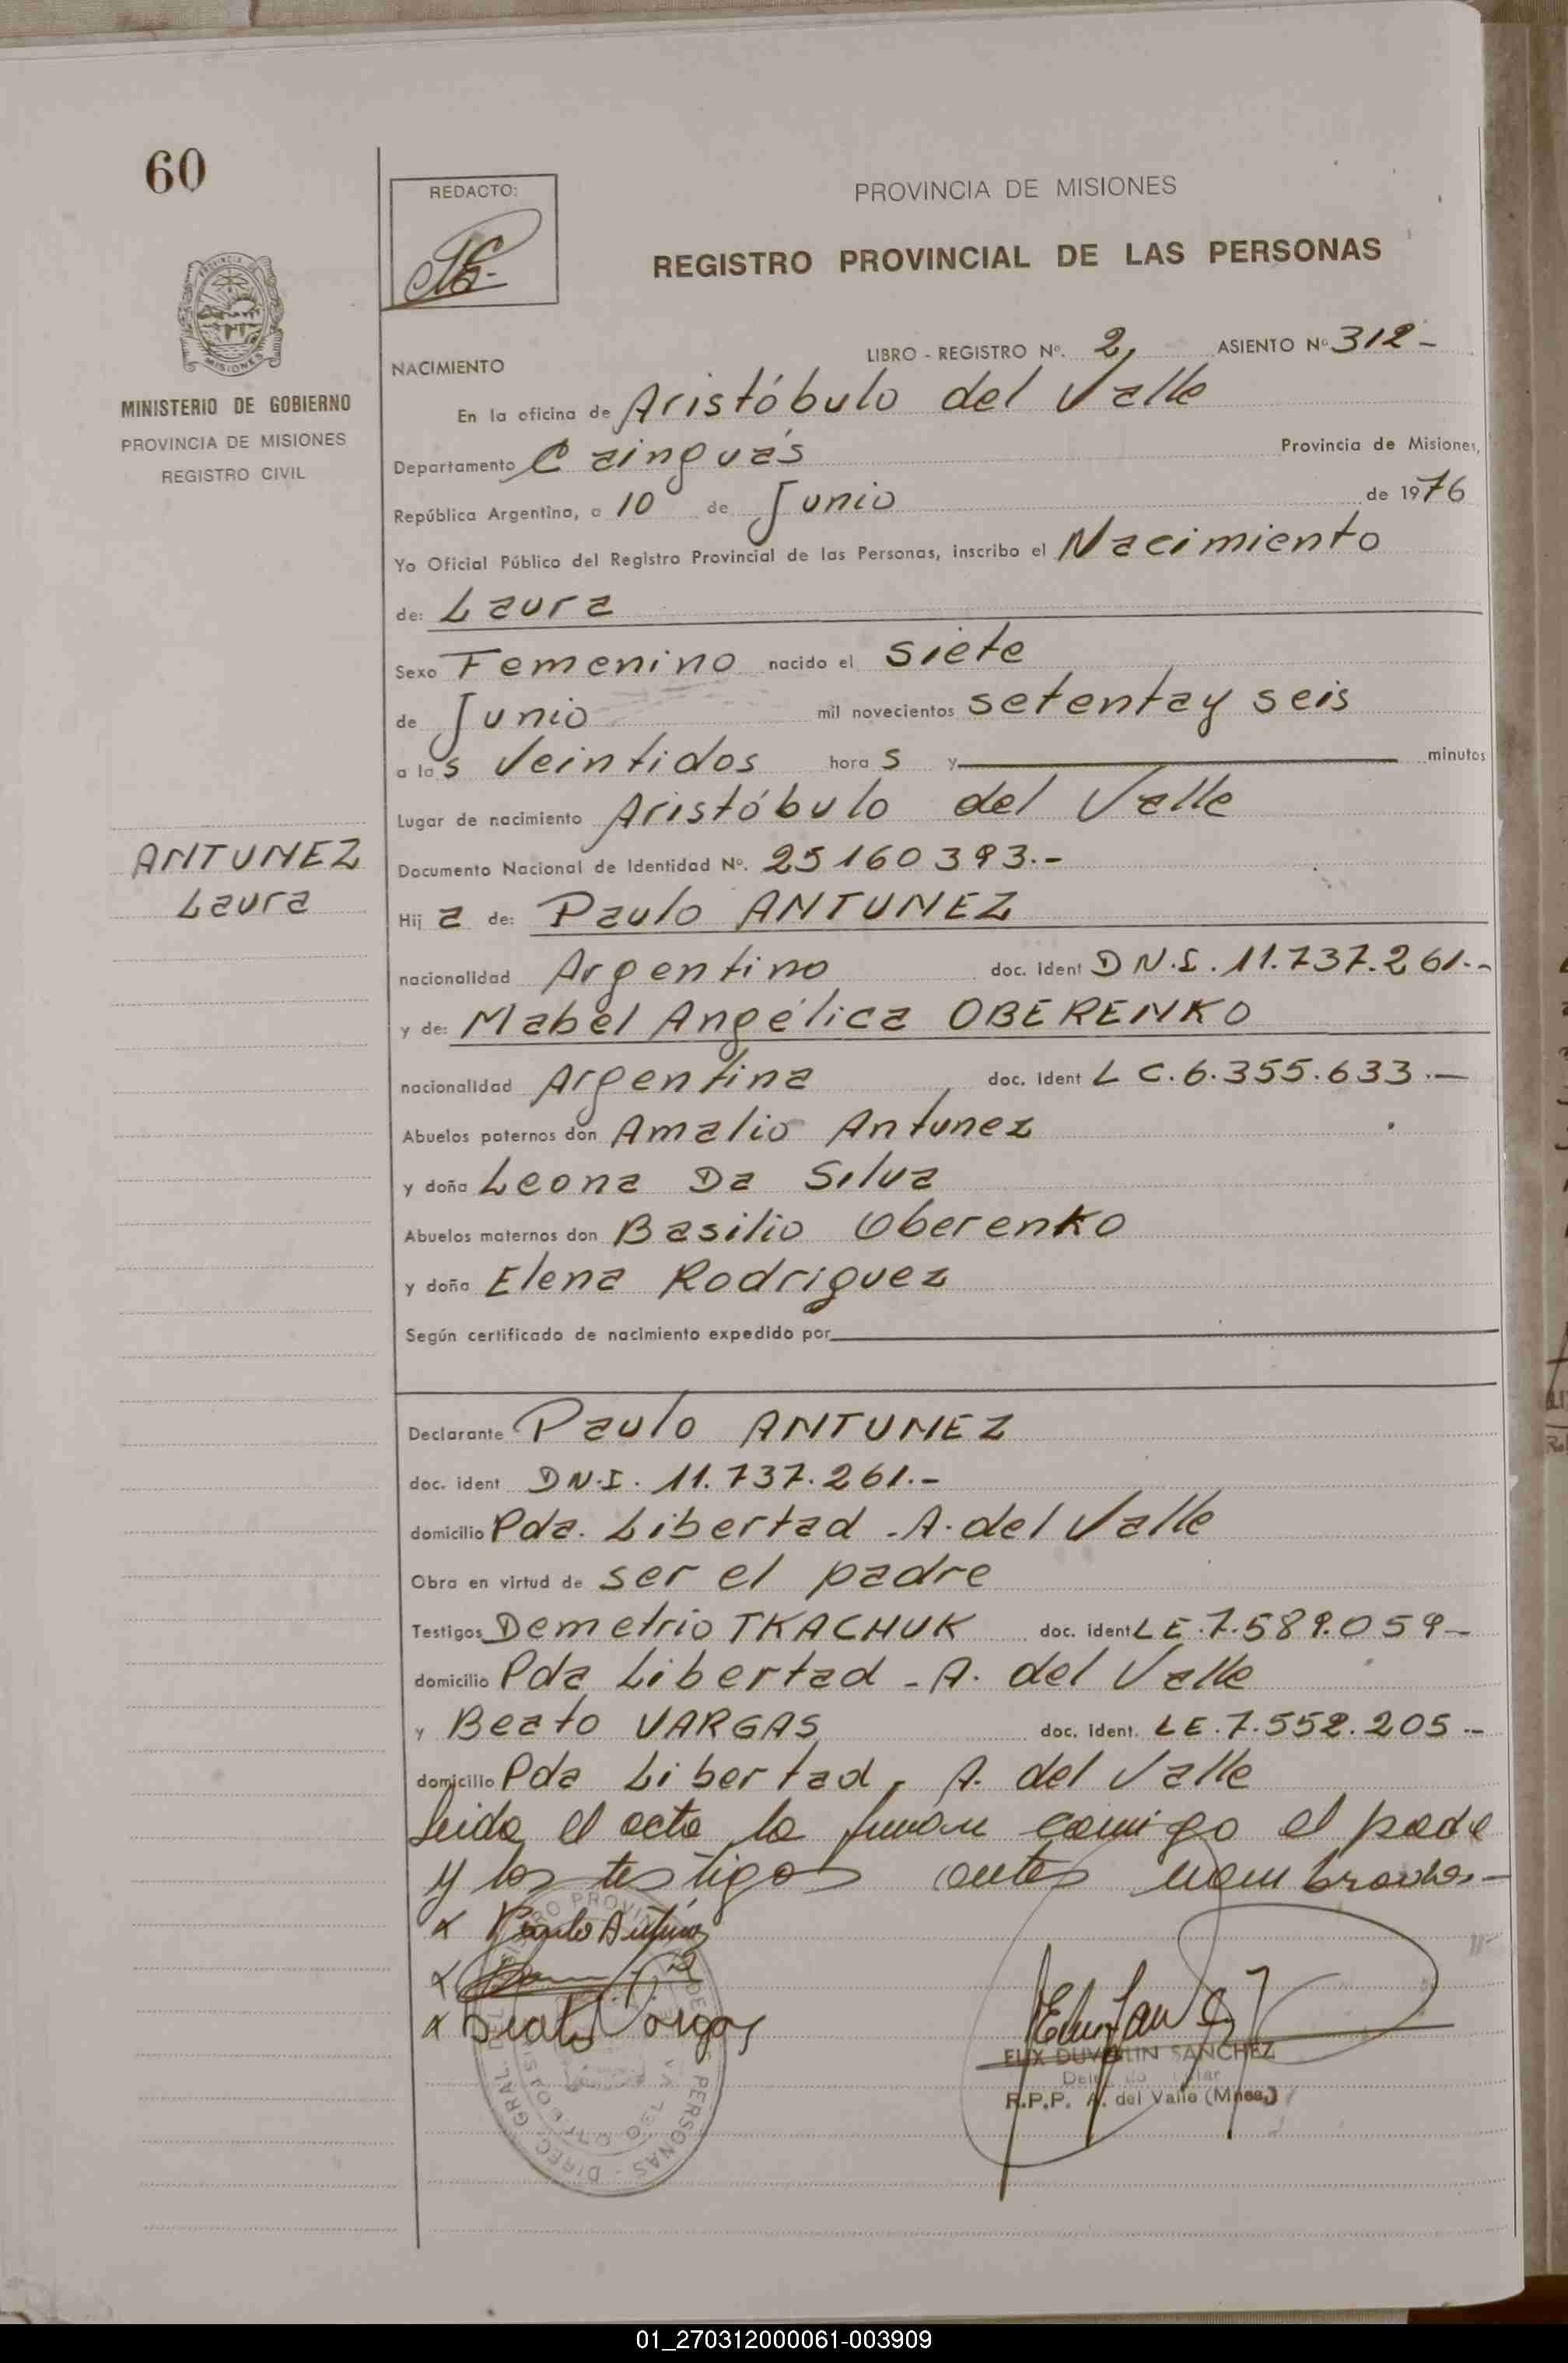 60
REDACTO:
PROVINCIA DE MISIONES
REGISTRO PROVINCIAL DE LAS PERSONAS
PROVINCIA
MISIONES
MINISTERIO DE GOBIERNO
PROVINCIA DE MISIONES
REGISTRO CIVIL
NACIMIENTO
LIBRO - REGISTRO Nº. 2, ASIENTO Nº 312-
En la oficina de Aristóbulo del Valle
Departamento Cainguás Provincia de Misiones,
República Argentina, a 10 de Junio de 1976
Yo Oficial Público del Registro Provincial de las Personas, inscribo el Nacimiento
de: Laura
Sexo Femenino nacido el siete
de Junio mil novecientos setenta y seis
a las Veintidos horas y minutos
Lugar de nacimiento Aristóbulo del Valle
ANTUNEZ
Laura
Documento Nacional de Identidad Nº. 25160393.-
Hija de: Paulo ANTUNEZ
nacionalidad Argentino doc. ident D N.I. 11.737.261.-
y de: Mabel Angélica OBERENKO
nacionalidad Argentina doc. ident L C. 6.355.633.-
Abuelos paternos don Amalio Antunez
y doña Leona Da Silva
Abuelos maternos don Basilio Oberenko
y doña Elena Rodriguez
Según certificado de nacimiento expedido por
Declarante Paulo ANTUNEZ
doc. ident D N.I. 11.737.261.-
domicilio Pda. Libertad - A. del Valle
Obra en virtud de ser el padre
Testigos Demetrio TKACHUK doc. ident L E. 7.589.059-
domicilio Pda Libertad - A. del Valle
y Beato VARGAS doc. ident. L E. 7.552.205.-
domicilio Pda Libertad, A. del Valle
Leida el acta la firman conmigo el padre
y los testigos antes nombrados.-
x Paulo Antunez
x
x Beato Vargas
DUVALIN SANCHEZ
R.P.P. A. del Valle (Mnes.)
01_270312000061-003909